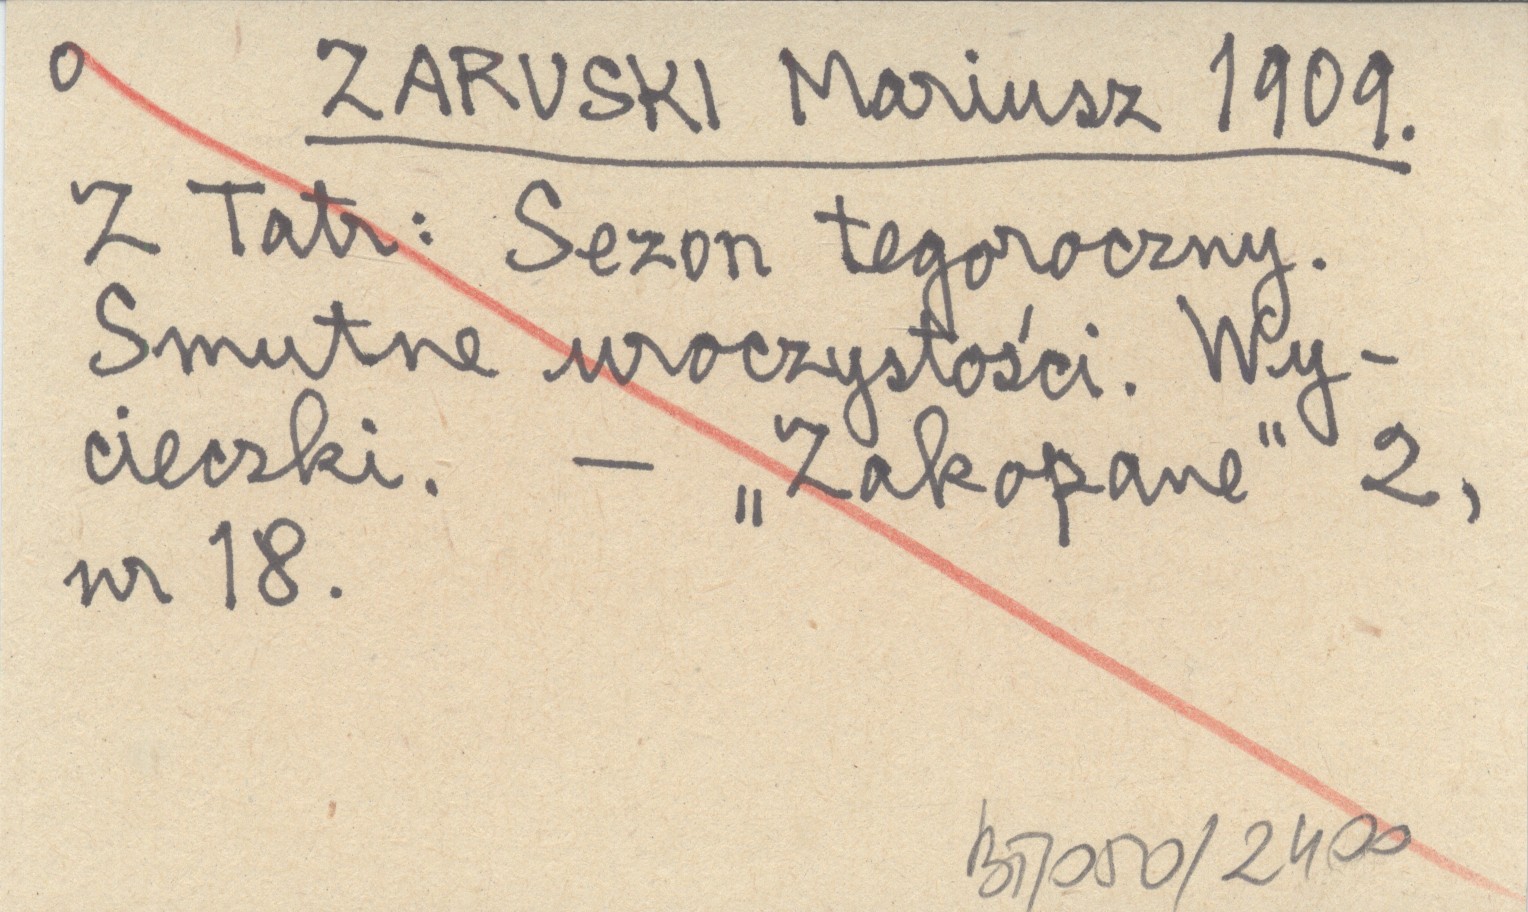 o ZARUSKI Mariusz 1909.
Z Tatr: Sezon tegoroczny.
Smutne uroczystości. Wy-
cieczki. — „Zakopane" 2,
nr 18.
BT/050/2400